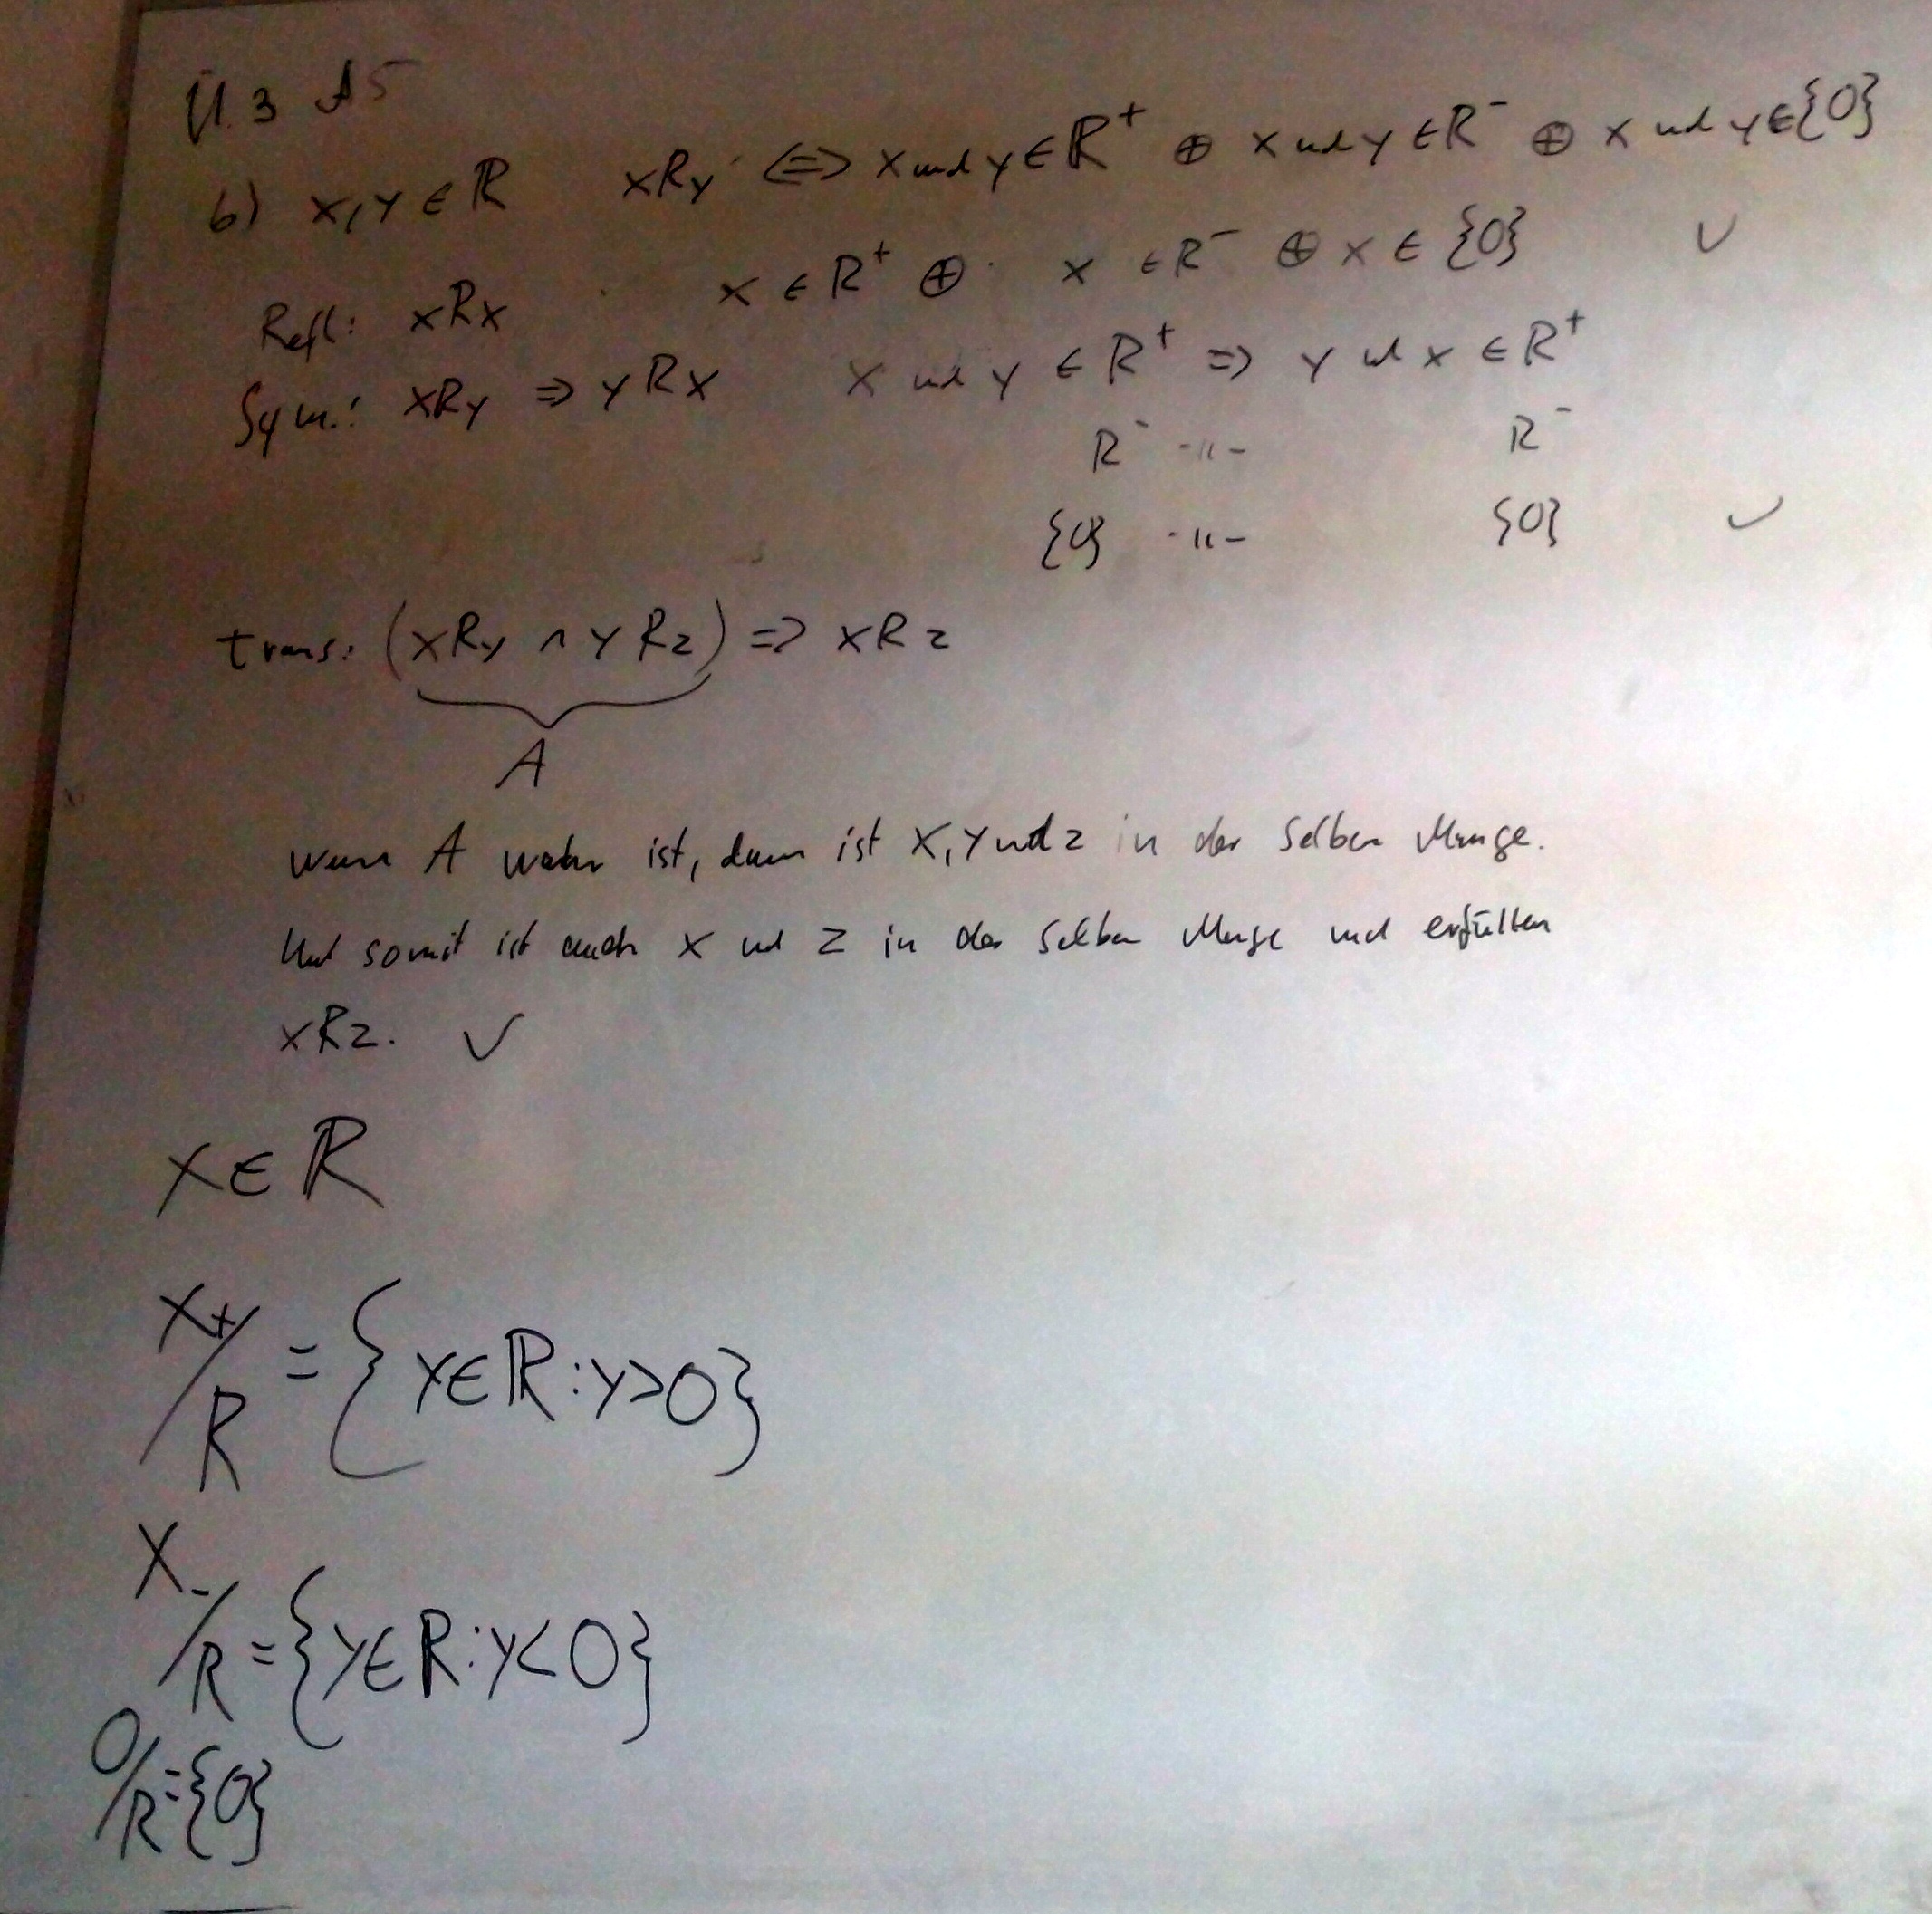 Ü.3 A5
b) x,y ∈ ℝ xRy ⇔ x und y ∈ ℝ⁺ ⊕ x und y ∈ ℝ⁻ ⊕ x und y ∈ {0}
Refl: xRx x ∈ ℝ⁺ ⊕ x ∈ ℝ⁻ ⊕ x ∈ {0} ✓
Sym.: xRy ⇒ yRx x und y ∈ ℝ⁺ ⇒ y und x ∈ ℝ⁺
ℝ⁻ -"- ℝ⁻
{0} -"- {0} ✓
trans: (xRy ∧ yRz) ⇒ xRz
A
wenn A wahr ist, dann ist x, y und z in der selben Menge.
Und somit ist auch x und z in der selben Menge und erfüllen
xRz. ✓
x ∈ ℝ
x₊/R = {y ∈ ℝ : y > 0}
x₋/R = {y ∈ ℝ : y < 0}
0/R = {0}